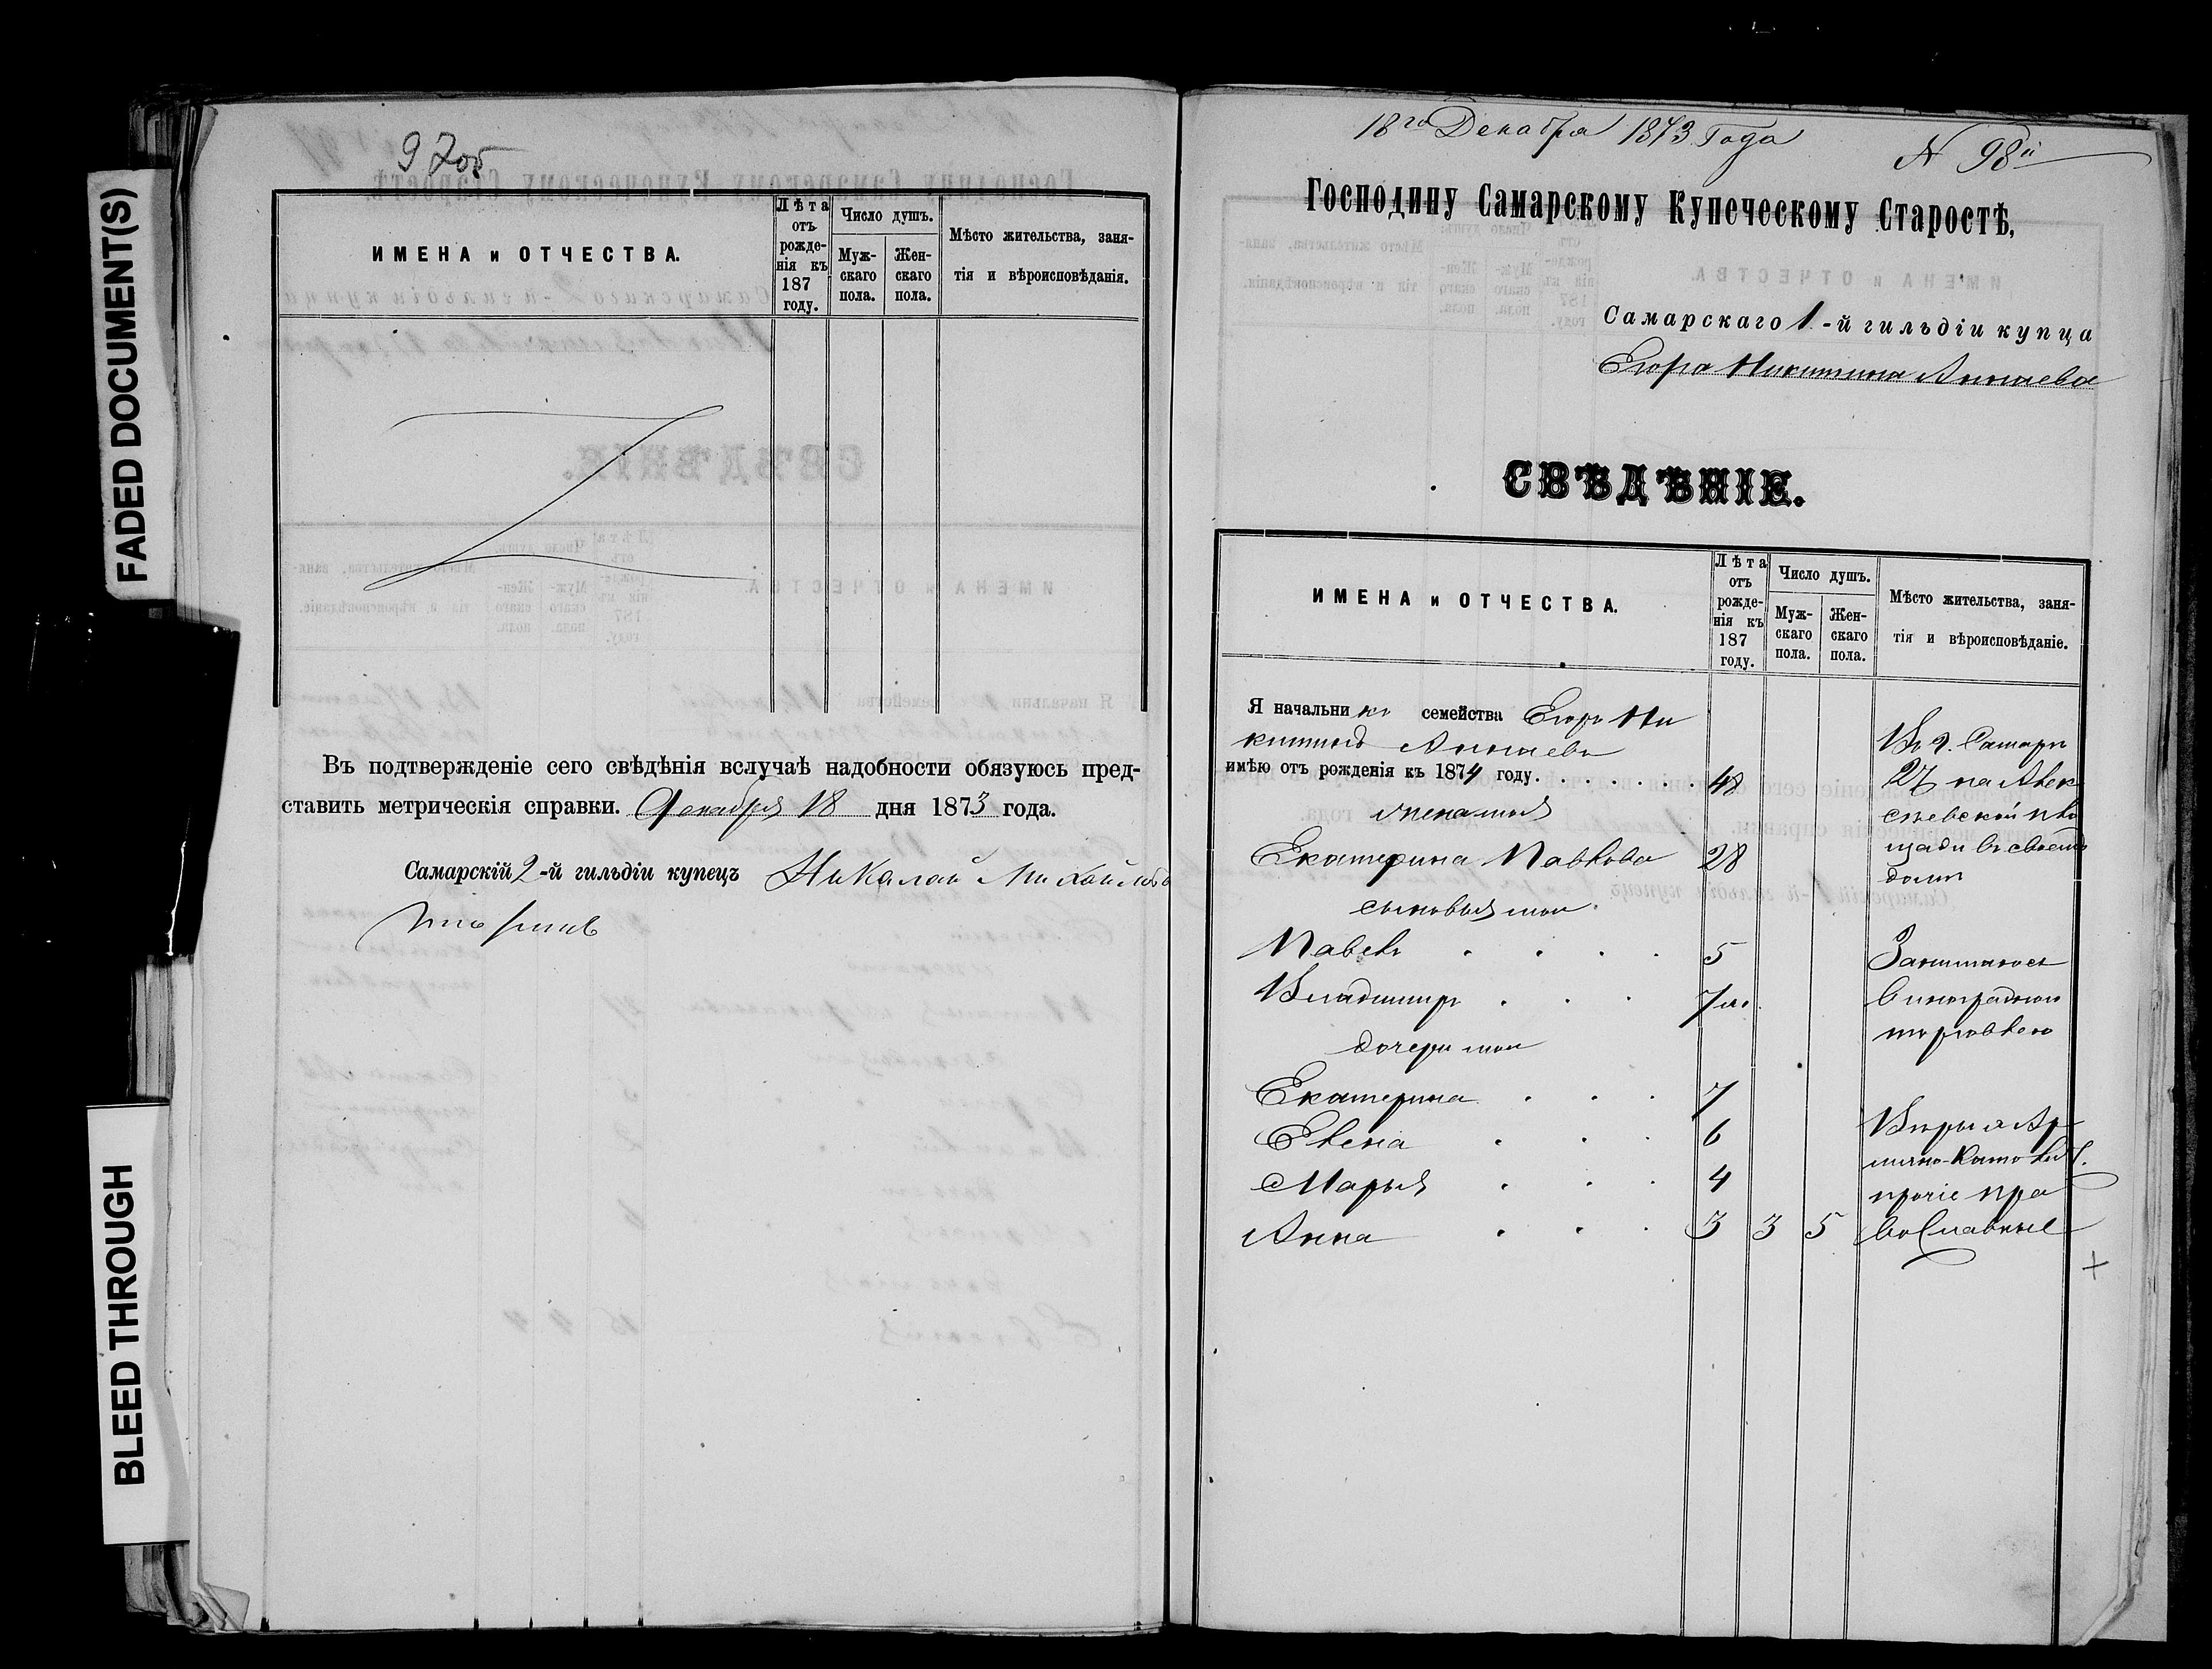 FADED DOCUMENT(S)
BLEED THROUGH
97об
ИМЕНА и ОТЧЕСТВА.
Лѣта отъ рожденія къ 187 году.
Число душъ.
Мужскаго пола.
Женскаго пола.
Мѣсто жительства, занятія и вѣроисповѣданія.
Въ подтвержденіе сего свѣдѣнія вслучаѣ надобности обязуюсь пред-
ставить метрическія справки. Декабря 18 дня 1873 года.
Самарскій 2-й гильдіи купецъ Николай Михайловъ
18го Декабря 1873 Года
N 98й
Господину Самарскому Купеческому Старостѣ,
Самарскаго 1-й гильдіи купца
Егора Никитина Аннаева
СВѢДѢНІЕ.
ИМЕНА и ОТЧЕСТВА.
Лѣта отъ рожденія къ 187 году.
Число душъ.
Мужскаго пола.
Женскаго пола.
Мѣсто жительства, занятія и вѣроисповѣданіе.
Я начальникъ семейства Егоръ Ни
китинъ Аннаевъ
имѣю отъ рожденія къ 1874 году. 48
жена моя
Екатерина Павлова 28
сыновья мои
Павелъ 5
Владимиръ 7 м.
дочери мои
Екатерина 7
Елена 6
Марья 4
Анна 3 3 5
Въ г. Самарѣ
2й на Алек
сѣевской пло
щади въ своемъ
домѣ
Занимаюсь
виноградною
торговлею
Вѣры я Ар
мяно-Католич.
прочіе пра
вославные